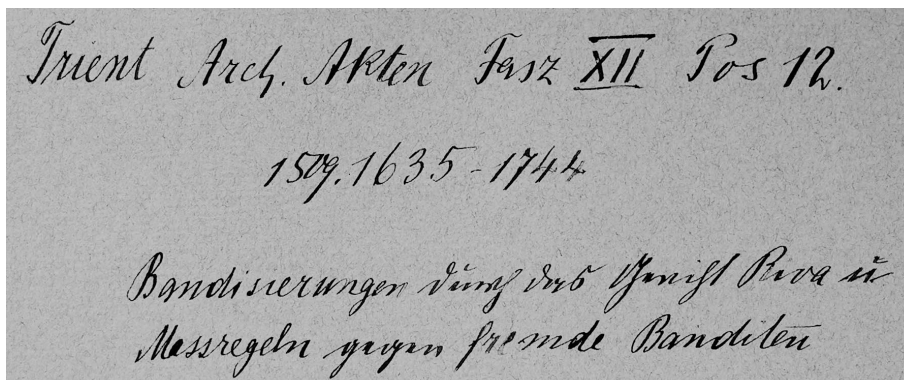 Trient Arch. Akten Fasz XII Pos 12.
1509. 1635 - 1744
Bandisierungen durch das Gericht Riva u
Massregeln gegen fremde Banditen